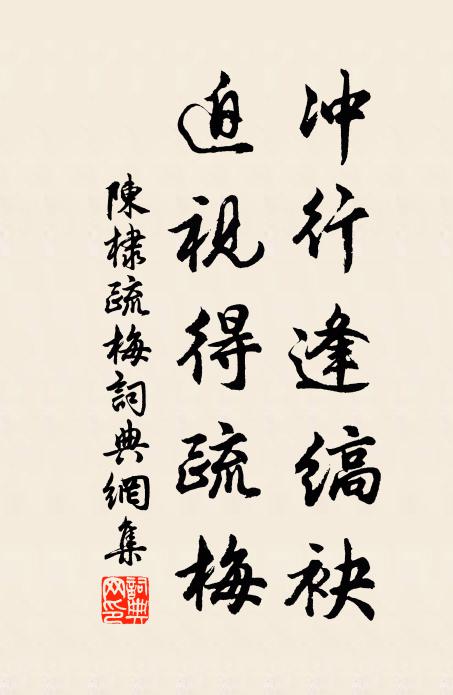 冲行逢缟袂
迫视得疏梅
陳棣疏梅詞典網集
詞典網印